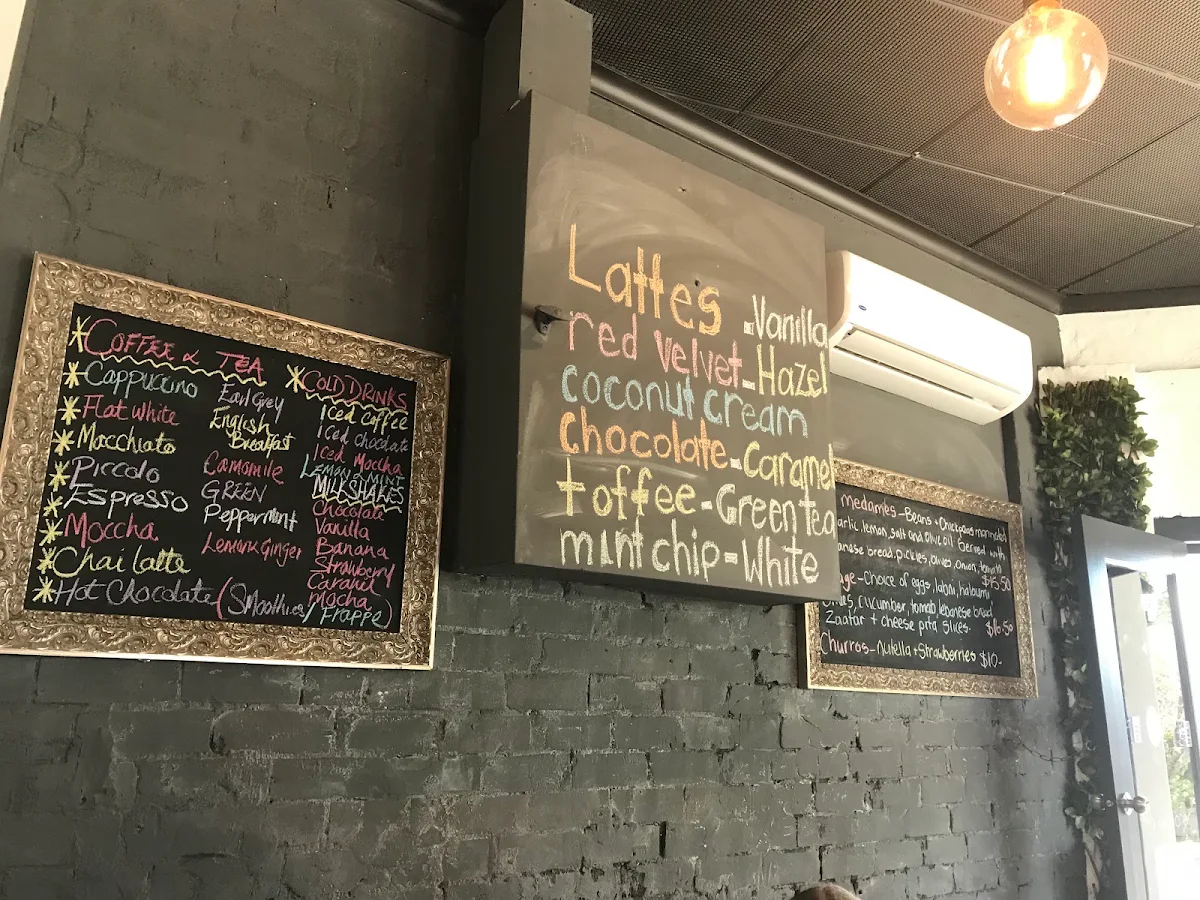 COFFEE & TEA
Cappuccino
Flat White
Macchiato
Piccolo
Espresso
Moccha
Chai latte
Hot Chocolate (Smoothies/Frappe)
Earl Grey
English
Breakfast
Camomile
GREEN
Peppermint
Lemon & Ginger
COLD DRINKS
Iced Coffee
Iced chocolate
Iced Moccha
LEMON & MINT
MILKSHAKES
Chocolate
Vanilla
Banana
Strawberry
Caramel
mocha
Lattes - Vanilla
red velvet - Hazel
coconut cream
Chocolate - Caramel
toffee - Green tea
mint chip - White
medames - Beans + Chickpeas marinated
arlic, lemon, salt and olive oil Served with
anese bread, pickles, olives, onion, tomato
$15.50
age - Choice of eggs, labni, haloumi
cucumber, tomato lebanese bread
Zaatar + cheese pita slices. $16.50
Churros - Nutella + Strawberries $10-